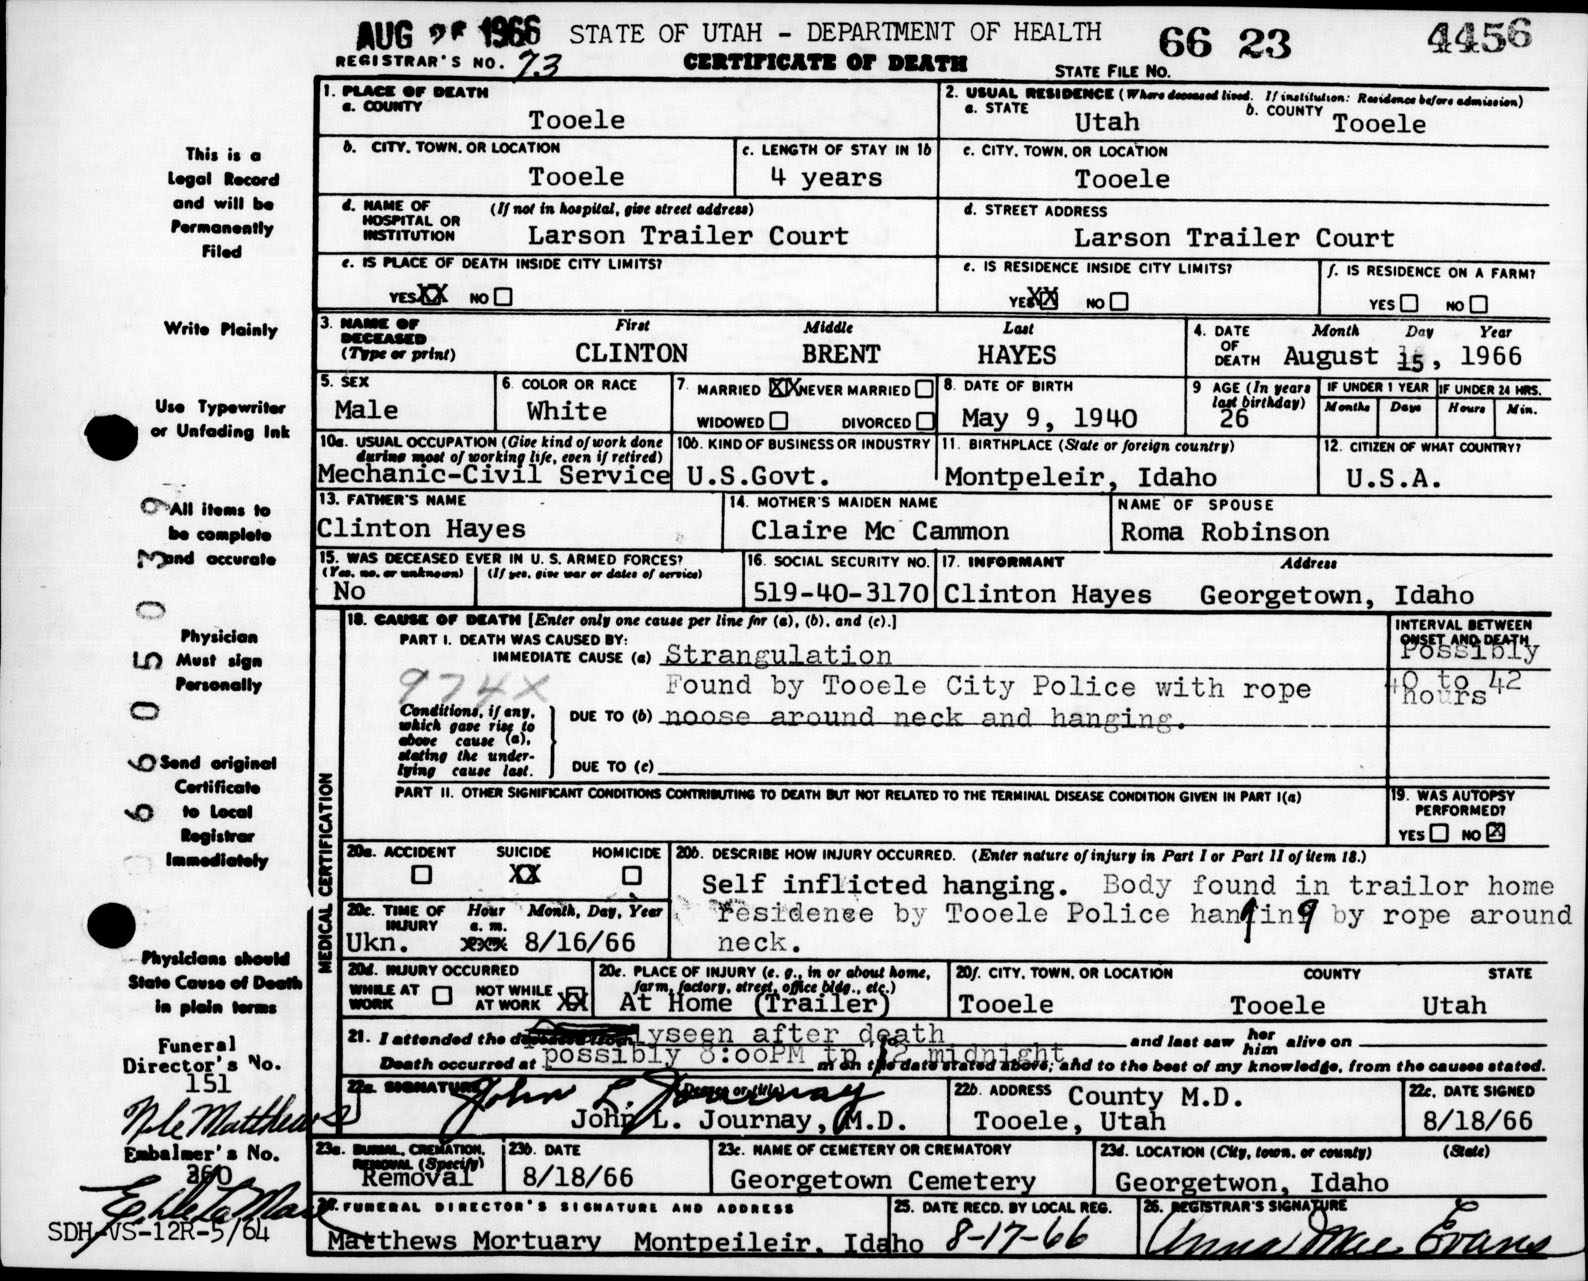 AUG 1966 STATE OF UTAH - DEPARTMENT OF HEALTH 66 23 4456
REGISTRAR'S NO. 73 CERTIFICATE OF DEATH STATE FILE NO.
1. PLACE OF DEATH
a. COUNTY
Tooele
2. USUAL RESIDENCE (Where deceased lived. If institution: Residence before admission)
a. STATE b. COUNTY
Utah Tooele
b. CITY, TOWN, OR LOCATION
Tooele
c. LENGTH OF STAY IN 1b
4 years
c. CITY, TOWN, OR LOCATION
Tooele
d. NAME OF HOSPITAL OR INSTITUTION (If not in hospital, give street address)
Larson Trailer Court
d. STREET ADDRESS
Larson Trailer Court
e. IS PLACE OF DEATH INSIDE CITY LIMITS?
YES XX NO
e. IS RESIDENCE INSIDE CITY LIMITS?
YES XX NO
f. IS RESIDENCE ON A FARM?
YES NO
3. NAME OF DECEASED (Type or print)
First Middle Last
CLINTON BRENT HAYES
4. DATE OF DEATH Month Day Year
August 15, 1966
5. SEX
Male
6. COLOR OR RACE
White
7. MARRIED XX NEVER MARRIED
WIDOWED DIVORCED
8. DATE OF BIRTH
May 9, 1940
9 AGE (In years last birthday)
26
IF UNDER 1 YEAR IF UNDER 24 HRS.
Months Days Hours Min.
10a. USUAL OCCUPATION (Give kind of work done during most of working life, even if retired)
Mechanic-Civil Service
10b. KIND OF BUSINESS OR INDUSTRY
U.S.Govt.
11. BIRTHPLACE (State or foreign country)
Montpeleir, Idaho
12. CITIZEN OF WHAT COUNTRY?
U.S.A.
13. FATHER'S NAME
Clinton Hayes
14. MOTHER'S MAIDEN NAME
Claire Mc Cammon
NAME OF SPOUSE
Roma Robinson
15. WAS DECEASED EVER IN U. S. ARMED FORCES?
(Yes, no, or unknown) (If yes, give war or dates of service)
No
16. SOCIAL SECURITY NO.
519-40-3170
17. INFORMANT Address
Clinton Hayes Georgetown, Idaho
18. CAUSE OF DEATH [Enter only one cause per line for (a), (b), and (c).]
PART I. DEATH WAS CAUSED BY:
IMMEDIATE CAUSE (a) Strangulation
974X
Found by Tooele City Police with rope
Conditions, if any, which gave rise to above cause (a), stating the underlying cause last.
DUE TO (b) noose around neck and hanging.
DUE TO (c)
INTERVAL BETWEEN ONSET AND DEATH
Possibly
40 to 42
hours
PART II. OTHER SIGNIFICANT CONDITIONS CONTRIBUTING TO DEATH BUT NOT RELATED TO THE TERMINAL DISEASE CONDITION GIVEN IN PART I(a)
19. WAS AUTOPSY PERFORMED?
YES NO X
MEDICAL CERTIFICATION
20a. ACCIDENT SUICIDE HOMICIDE
XX
20b. DESCRIBE HOW INJURY OCCURRED. (Enter nature of injury in Part I or Part II of item 18.)
Self inflicted hanging. Body found in trailor home
residence by Tooele Police hanging by rope around
neck.
20c. TIME OF INJURY Hour a. m. Month, Day, Year
Ukn. xxx 8/16/66
20d. INJURY OCCURRED
WHILE AT WORK NOT WHILE AT WORK XX
20e. PLACE OF INJURY (e. g., in or about home, farm, factory, street, office bldg., etc.)
At Home (Trailer)
20f. CITY, TOWN, OR LOCATION COUNTY STATE
Tooele Tooele Utah
21. I attended the yseen after death and last saw her him alive on
Death occurred at possibly 8:ooPM to 12 midnight m on the date stated above; and to the best of my knowledge, from the causes stated.
22a. SIGNATURE (Degree or title)
John L. Journay
John L. Journay, M.D.
22b. ADDRESS County M.D.
Tooele, Utah
22c. DATE SIGNED
8/18/66
23a. BURIAL, CREMATION, REMOVAL (Specify)
Removal
23b. DATE
8/18/66
23c. NAME OF CEMETERY OR CREMATORY
Georgetown Cemetery
23d. LOCATION (City, town, or county) (State)
Georgetwon, Idaho
24. FUNERAL DIRECTOR'S SIGNATURE AND ADDRESS
Matthews Mortuary Montpeileir, Idaho
25. DATE RECD. BY LOCAL REG.
8-17-66
26. REGISTRAR'S SIGNATURE
Anna Mae Evans
This is a
Legal Record
and will be
Permanently
Filed
Write Plainly
Use Typewriter
or Unfading Ink
All items to
be complete
and accurate
Physician
Must sign
Personally
Send original
Certificate
to Local
Registrar
Immediately
Physicians should
State Cause of Death
in plain terms
Funeral
Director's No.
151
Embalmer's No.
SDH-VS-12R-5/64